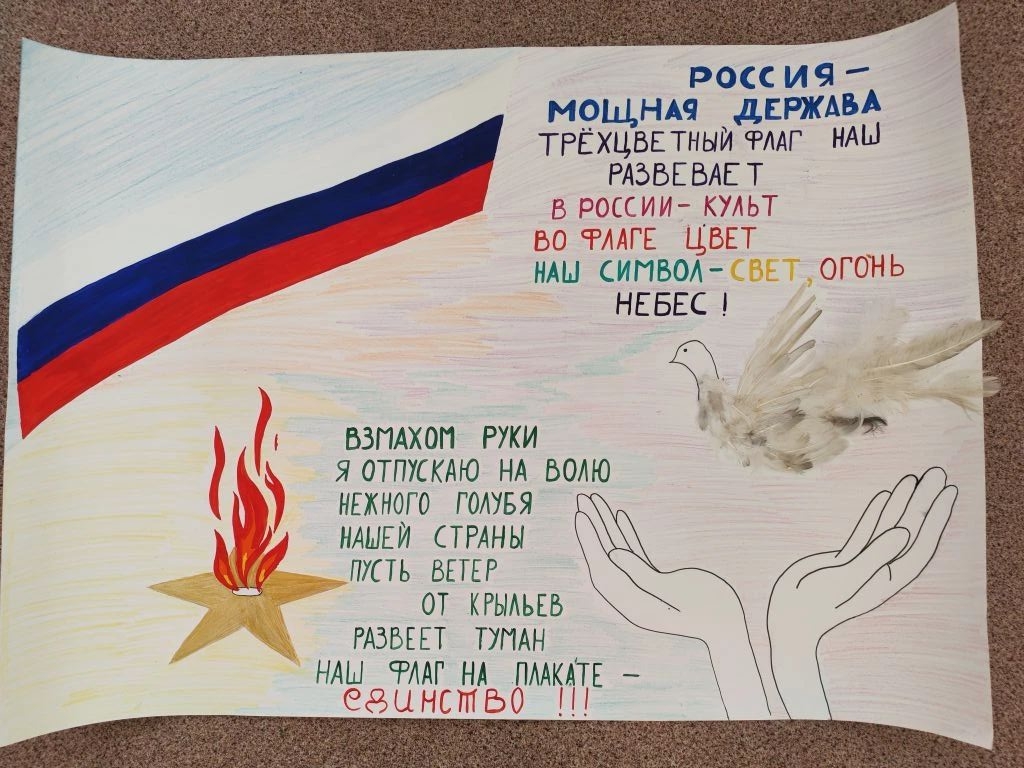 РОССИЯ –
МОЩНАЯ ДЕРЖАВА
ТРЁХЦВЕТНЫЙ ФЛАГ НАШ
РАЗВЕВАЕТ
В РОССИИ – КУЛЬТ
ВО ФЛАГЕ ЦВЕТ
НАШ СИМВОЛ – СВЕТ, ОГОНЬ
НЕБЕС !
ВЗМАХОМ РУКИ
Я ОТПУСКАЮ НА ВОЛЮ
НЕЖНОГО ГОЛУБЯ
НАШЕЙ СТРАНЫ
ПУСТЬ ВЕТЕР
ОТ КРЫЛЬЕВ
РАЗВЕЕТ ТУМАН
НАШ ФЛАГ НА ПЛАКАТЕ –
ЕДИНСТВО !!!